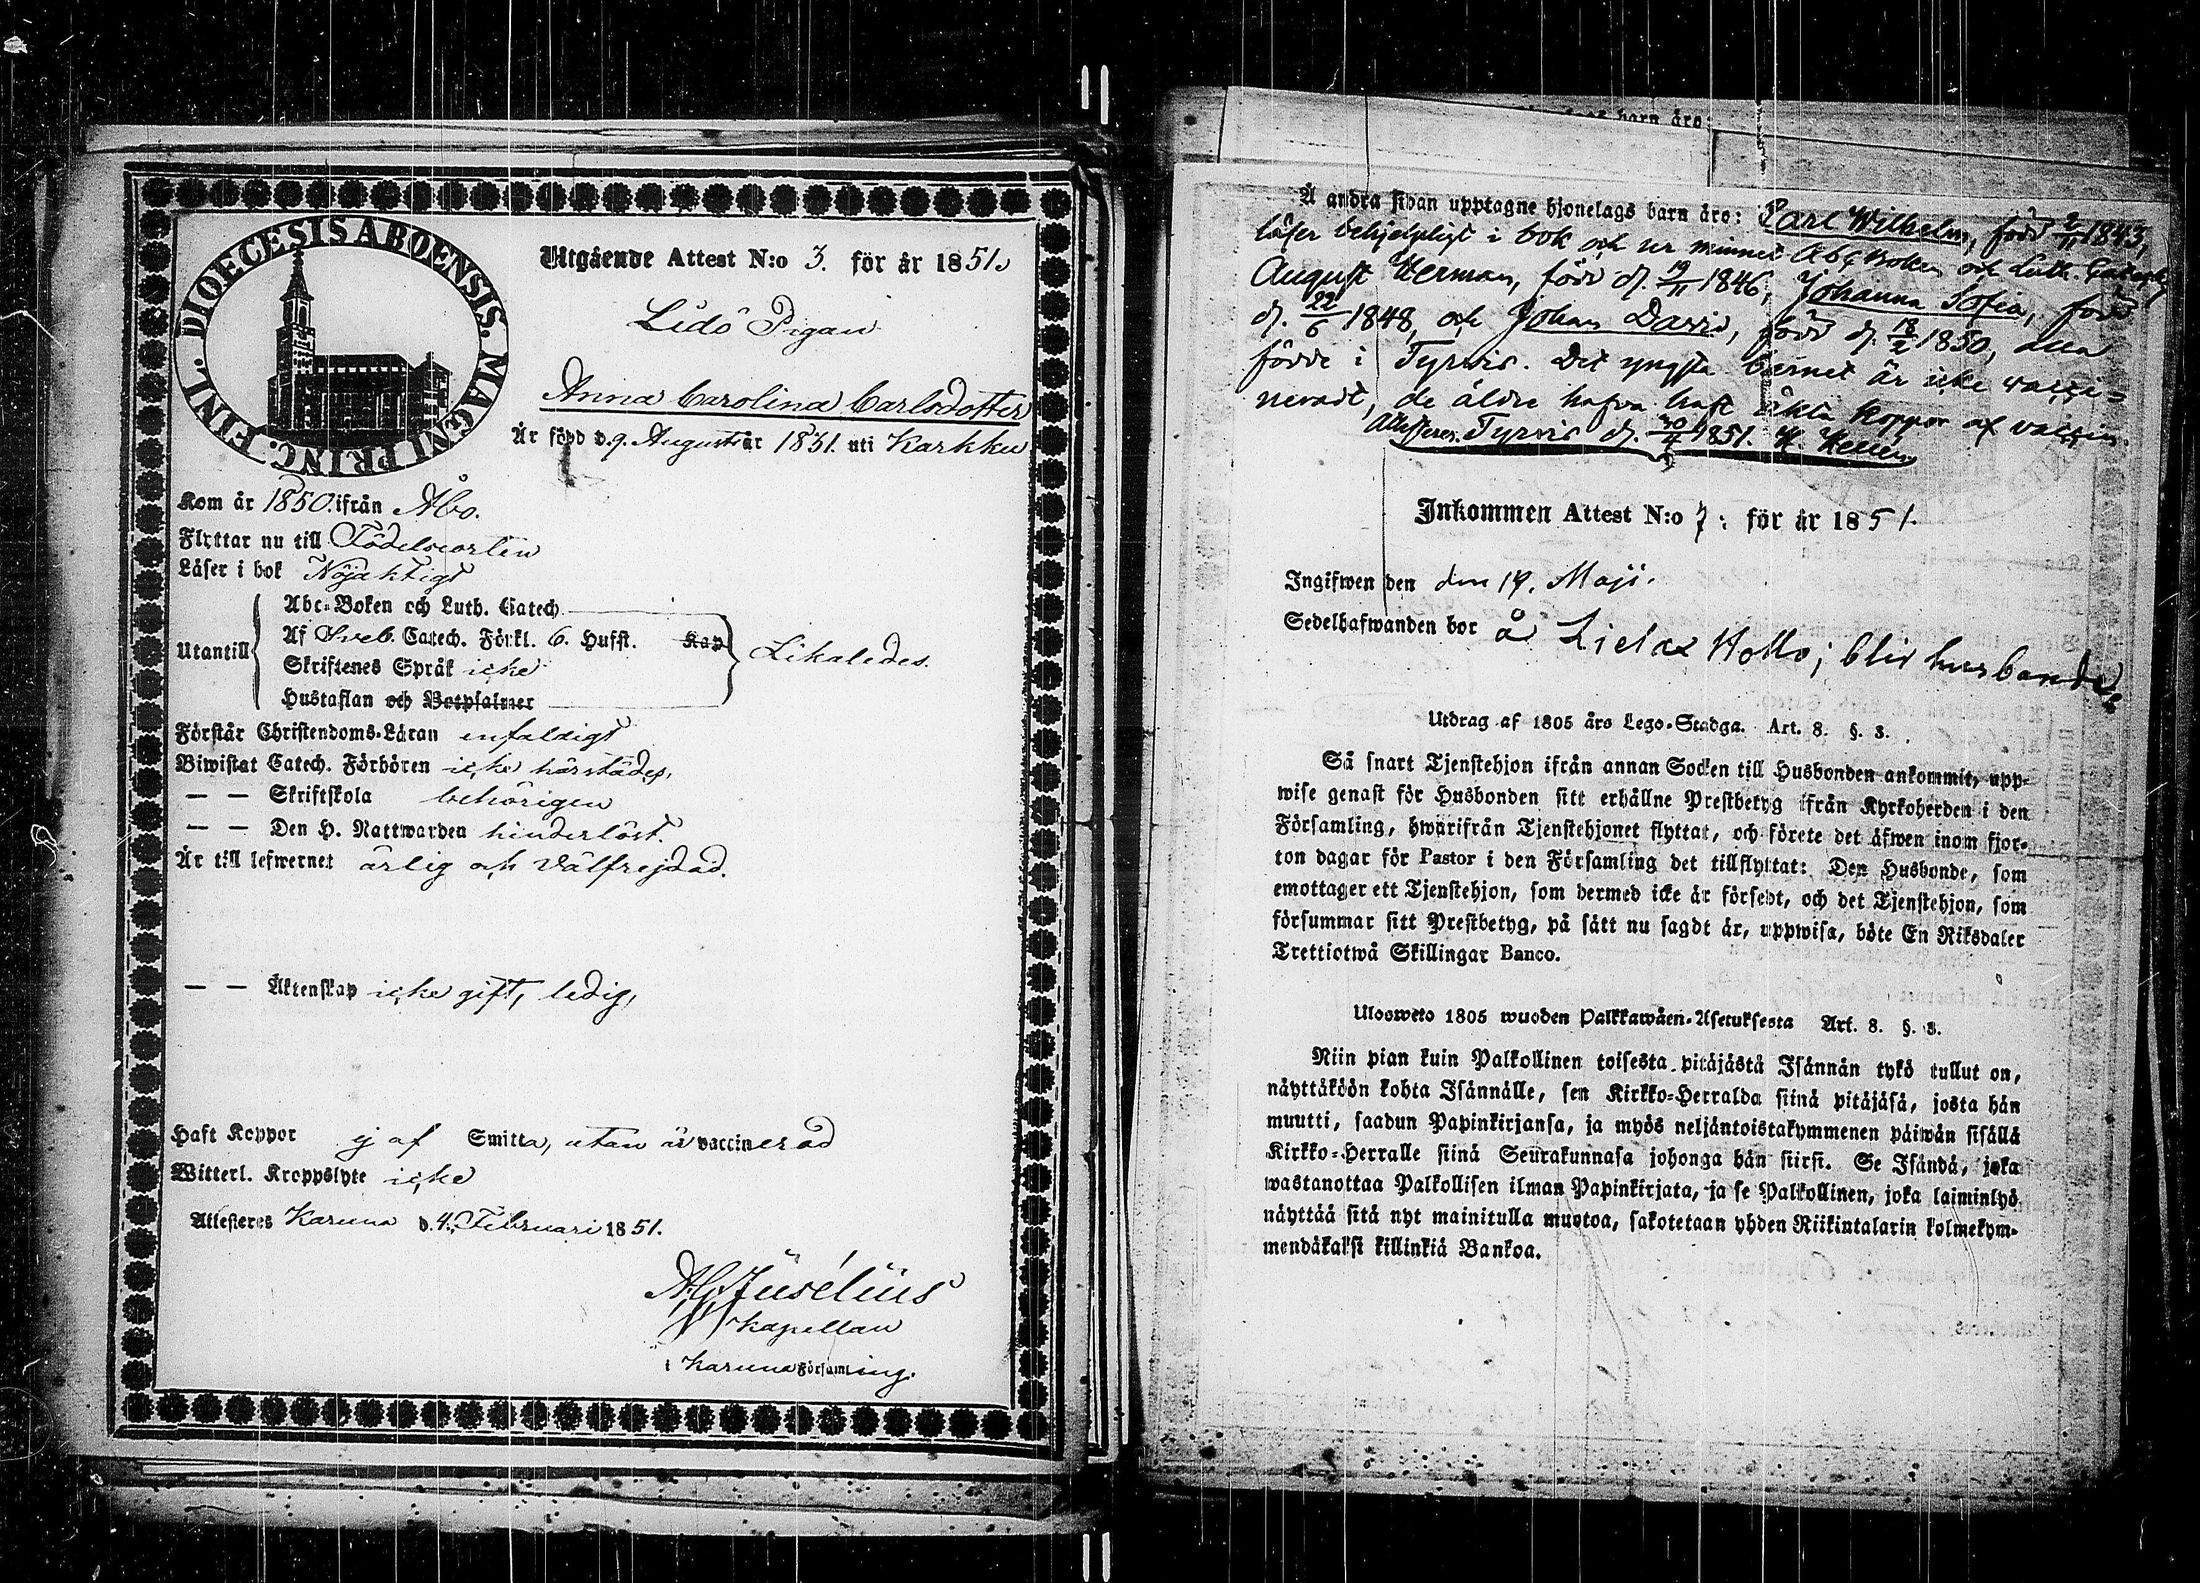 DIOECESIS ABOENSIS. MAGNI PRINC. FINL.
Utgående Attest N:o 3. för år 1851.
Lidö Pigan
Anna Carolina Carlsdotter
Är född d. 9. Augusti år 1831. uti Karkku
Kom år 1850. ifrån Åbo.
Flyttar nu till Födelseorten
Läser i bok Nöjaktigt
Utantill
Abc-Boken och Luth. Catech.
Af Sveb. Catech. Förkl. 6. Hufst. Kap
Skriftenes Språk icke
Hustaflan och Botpsalmer
Likaledes.
Förstår Christendoms-Läran enfaldigt
Biwistat Catech. Förhören icke härstädes,
— — Skriftskola behörigen
— — Den H. Nattwarden hinderlöst.
Är till lefwernet ärlig och välfrejdad.
— — Äktenskap icke gift, ledig,
Haft Koppor ej af Smitta, utan är vaccinerad
Witterl. Kroppslyte icke
Attesteres Karuna d. 4. Februari 1851.
Kapellan
i Karuna Församling.
barn äro:
Å andra sidan upptagne hjonelags barn äro: Carl Wilhelm, född 2/11 1843,
läser behjelpligt i bok och ur minnet Abc Boken och Luth. Catech,
August Herman, född d. 19/11 1846, Johanna Sofia, född
d. 22/6 1848, och Johan David, född d. 18/2 1850, alla
födde i Tyrvis. Det yngsta barnet är icke vacci-
neradt, de äldre hafva haft äkta koppor af vaccin.
Attesteres Tyrvis d. 30/4 1851. H. Hellén
Inkommen Attest N:o 7. för år 1851.
Ingifwen den den 19. Maji.
Sedelhafwanden bor å Liela Hollo; blir husbonde.
Utdrag af 1805 års Lego-Stadga. Art. 8. §. 3.
Så snart Tjenstehjon ifrån annan Socken till Husbonden ankommit, upp-
wise genast för Husbonden sitt erhållne Prestbetyg ifrån Kyrkoherden i den
Församling, hwarifrån Tjenstehjonet flyttat, och förete det äfwen inom fjor-
ton dagar för Pastor i den Församling det tillflyttat: Den Husbonde, som
emottager ett Tjenstehjon, som dermed icke är försedt, och det Tjenstehjon, som
försummar sitt Prestbetyg, på sätt nu sagdt är, uppwisa, böte En Riksdaler
Trettiotwå Skillingar Banco.
Ulosweto 1805 wuoden Palkkawäen-Asetuksesta Art. 8. §. 3.
Niin pian kuin Palkollinen toisesta pitäjästä Isännän tykö tullut on,
näyttäköön kohta Isännälle, sen Kirkko-Herralda siinä pitäjäsä, josta hän
muutti, saadun Papinkirjansa, ja myös neljäntoistakymmenen päiwän sisällä
Kirkko-Herralle siinä Seurakunnasa johonga hän siirsi. Se Isändä, joka
wastanottaa Palkollisen ilman Papinkirjata, ja se Palkollinen, joka laiminlyö
näyttää sitä nyt mainitulla muotoa, sakotetaan yhden Riikintalarin kolmekym-
mendäkaksi killinkiä Bankoa.